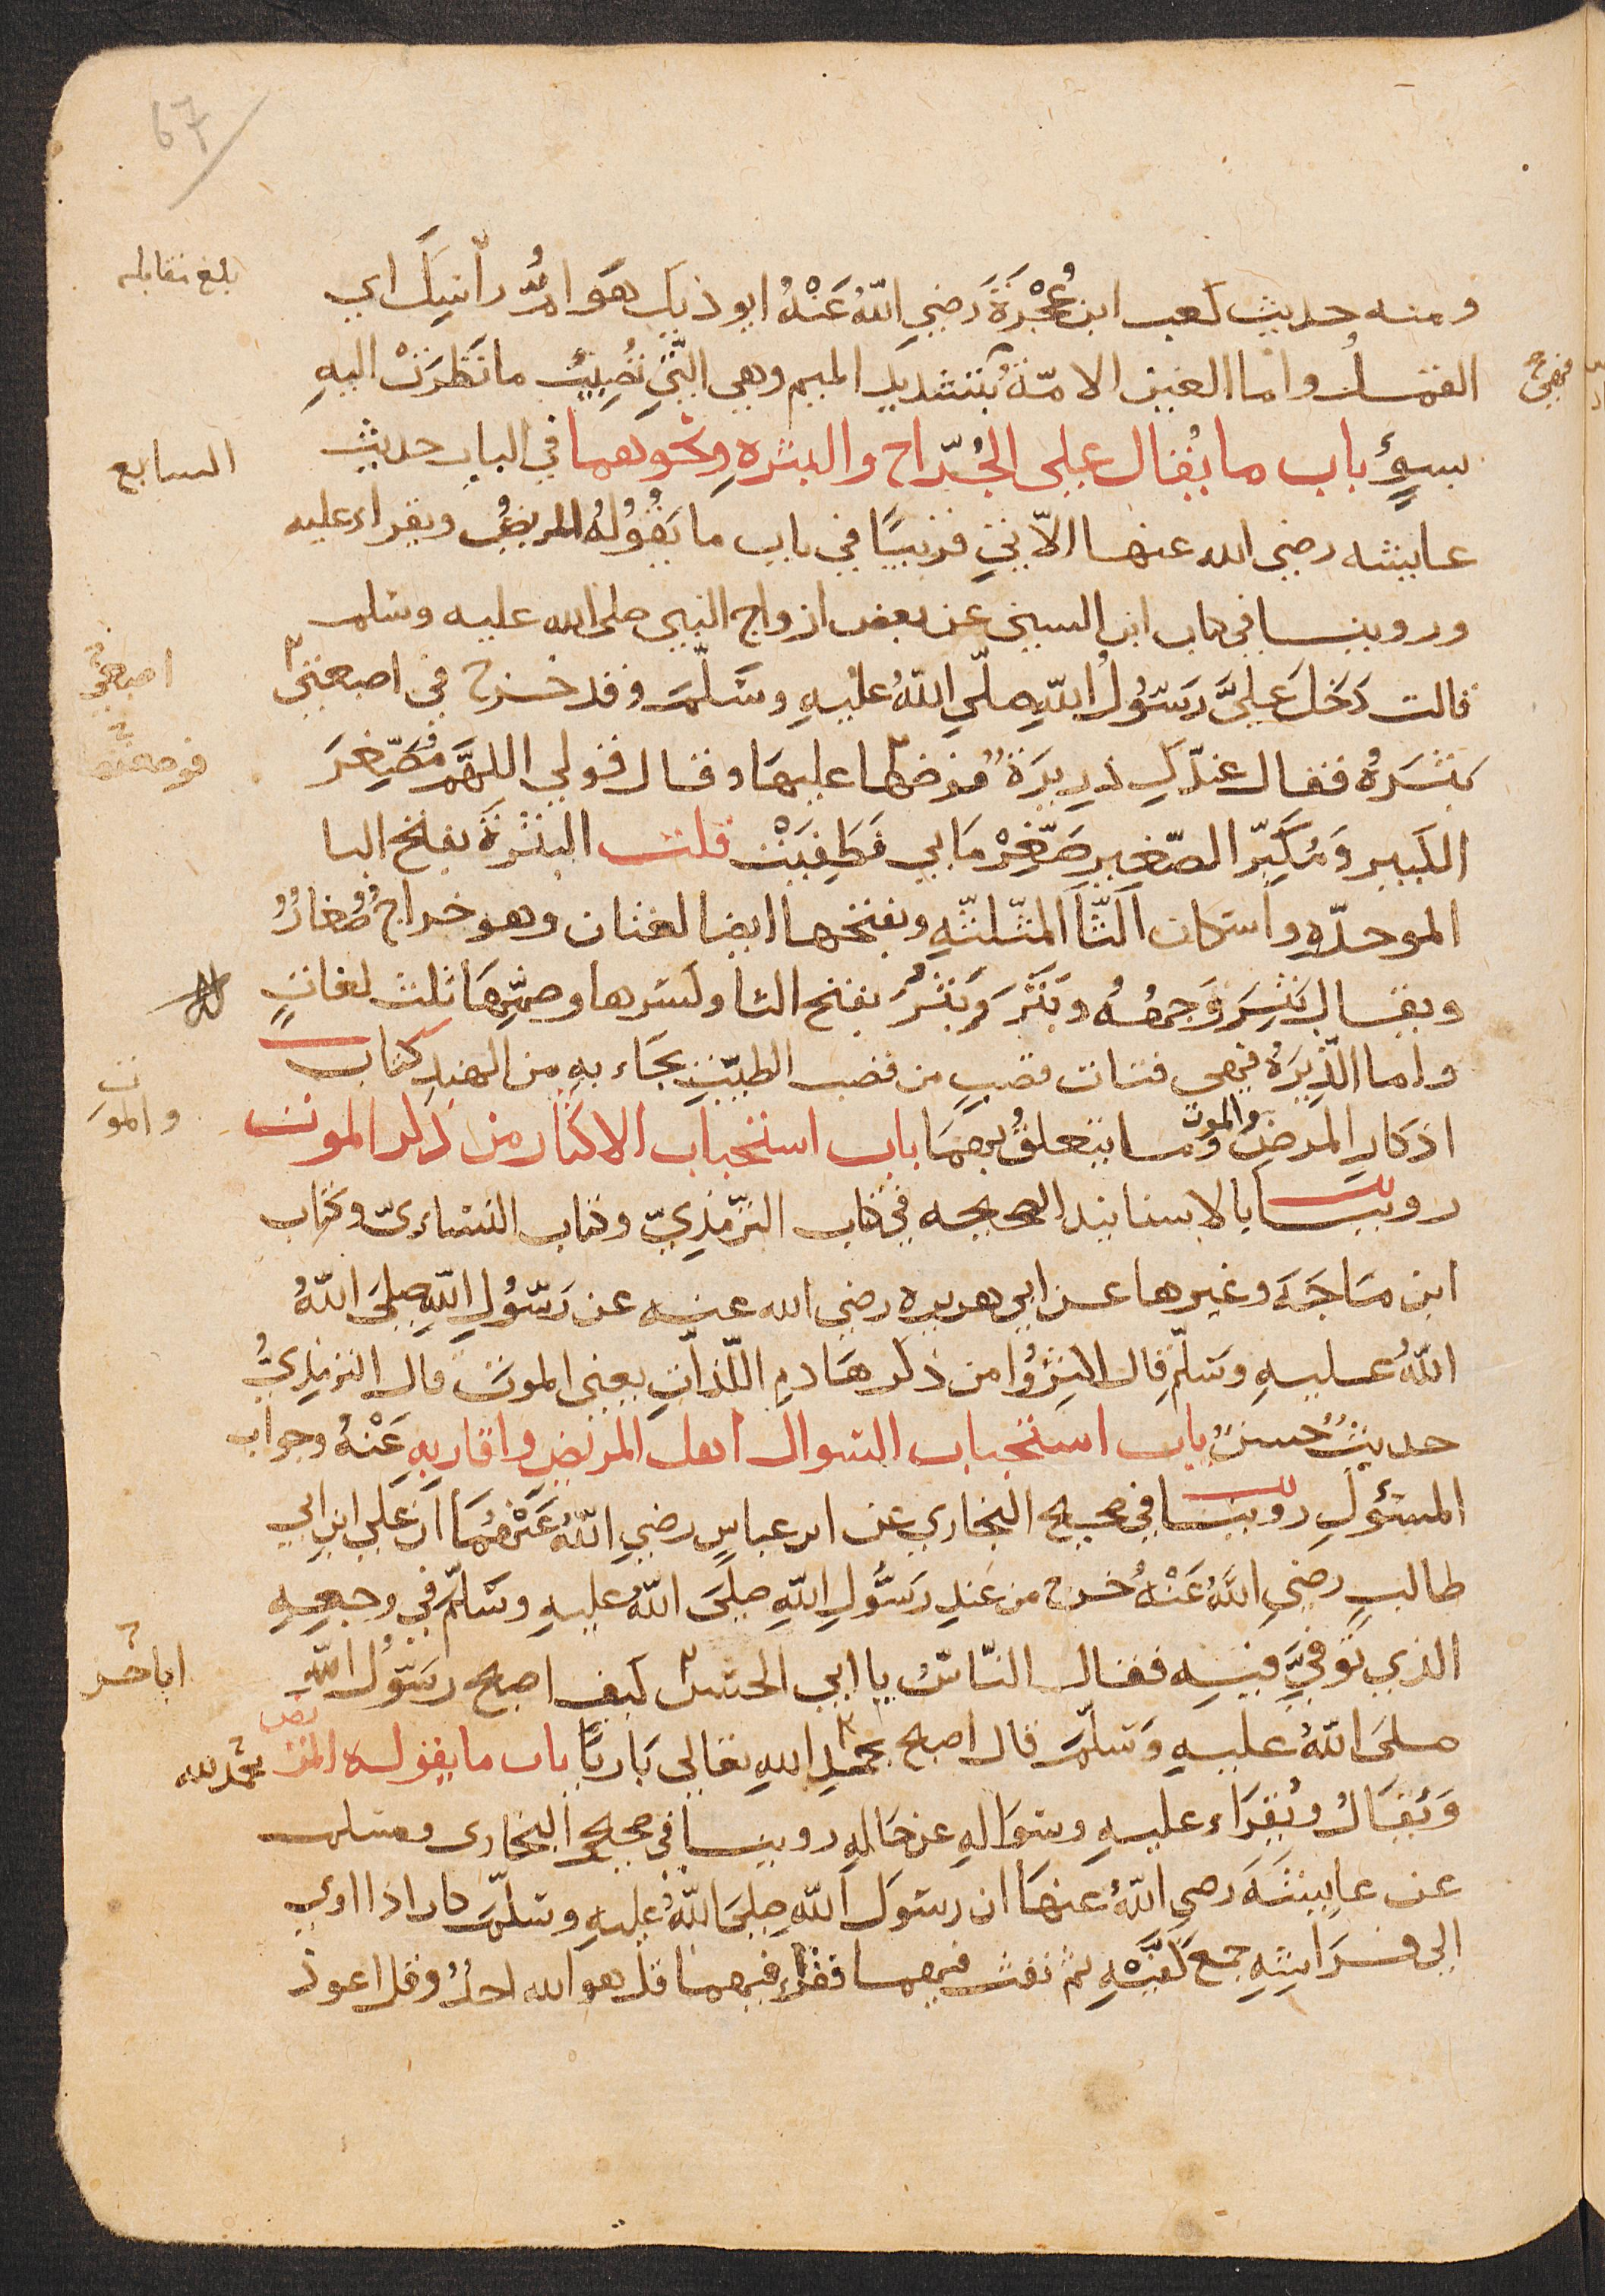 67
ومنه حديث كعب ابن عُجْرَةَ رَضِيَ اللهُ عَنْهُ ايوذيك هَوَامُّ رأسِكَ اي
بلغ مقابله
القمل واما العين الامّة بتشديد الميم وهي الّتِي تُصِيْبُ ما نَظَرَتْ اليهِ
بسوءٍ باب ما يُقال على الخُرّاج والبثرهِ ونحوهما في الباب حديث
السابع
عايشه رضي الله عنها الآتي قريبًا في باب ما يَقُوْلُهُ المريض ويقراء عليه
وروينا في كتاب ابن السني عن بعض ازواج النبي صلى الله عليه وسلم
قالت دَخَلَ عَلَيَّ رَسُوْلُ اللهِ صلّى اللهُ عليهِ وسَلَّمَ وقد خرج في اصبعتي
اصبعي
بَثْرَةٌ فقال عندكِ ذرِيرَة فوضعها عليها وقال قولي اللهمَّ مُصَغِّرَ
فوضعها
الكبير وَمُكَبِّر الصّغير صَغِّرْ مَا بي فَطَفِيَتْ قلت البثْرَة بفتح البا
الموحدّهِ واسكان الثّا المثلثّهِ وبفتحها ايضا لغتان وهو خراج صُغارٌ
ويقال بَثِرَ وَجهُهُ وبَثَرَ وبَثُرَ بفتح الثا وكسرها وضمّها ثلث لغاتٍ
واما الذَّرِيرَةُ فهي فتات قصبٍ من قصب الطيب يجَاء بهِ من الهندِ كتاب
اذكارِ المرضِ والموت وما يتعلقُ بهمَا باب استحباب الاكثار من ذكر الموت
والموت
روينا بالاسانيد الصحيحه في كتاب الترّمذيّ وكتاب النساءيّ وكتاب
ابن مَاجَه وغيرها عن ابي هريره رضي الله عنه عن رَسُوْلِ اللهِ صلىَ اللهُ
اللهُ عليهِ وسَلّم قال اكثِرُوا من ذكر هَادمِ اللّذاتِ يعني الموت قال الترمذيُّ
حديثٌ حسنٌ باب استحباب السوال اهل المريض واقاربهِ عَنْهُ وجواب
المسئولِ روينا في صحيح البخاري عن ابن عباسٍ رضيَ اللهُ عَنْهُمَا ان عَلي ابن ابي
طالبٍ رضيَ اللهُ عَنْهُ خرج من عندِ رَسُولِ اللهِ صلىَ اللهُ عليهِ وسَلّم في وجعِهِ
الذي تُوفِّيَ فيهِ فقال النّاسُ يا ابي الحسن كيف اصبح رَسُوْلُ اللهِ
ابا حسن
صلىَ اللهُ عليهِ وَسَلّمَ قال اصبح بحمدِ اللهِ تعَالي بَارِيًا باب ما يقوله المريض
بحمد لله
وَيُقَالُ ويُقرَاء عليهِ وسُوَالهِ عن حَالهِ روينا في صحيح البخاري ومسلم
عن عايشَةَ رضي اللهُ عنهَا ان رسُولَ اللهِ صلىَ اللهُ عليهِ وسلّمَ كان اذا اوي
الى فرَاشِهِ جمع كفّيْهِ ثم نفث فيهما فقراء فيهما قل هو الله احدٌ وقل اعوذ